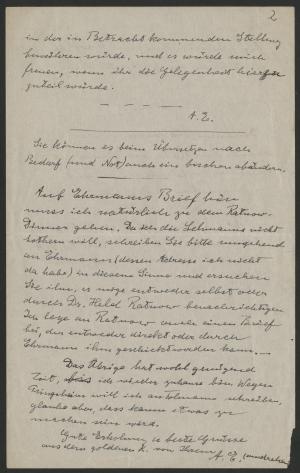 2
in der in Betracht kommenden Stellung
bewähren würde, und es würde mich
freuen, wenn ihr die Gelegenheit hierfür
zuteil würde.
A. E.
Sie können es beim Übersetzen nach
Bedarf (und Not) auch ein bischen abändern.
Auf Ehrmanns Brief hin
muss ich natürlich zu dem Ratnow-
Dinner gehen. Da der die Lehmanns nicht
will, schreiben Sie bitte umgehend
an Ehrmann (dessen Adresse ich nicht
da habe) in diesem Sinne und ersuchen
Sie ihn, es möge entweder selbst oder
durch Dr. Held Ratnow benachrichtigen
Ich lege an Ratnow einen Brief
bei, der entweder direkt oder durch
Ehrmann ihm geschickt werden kann.
Das Übrige hat wohl genügend
Zeit, bis ich wieder zuhause bin. Wegen
will ich an schreiben,
glaube aber, dass kaum etwas zu
machen sein wird.
Gute Erholung u. beste Grüsse
aus dem goldenen K. von Ihrem A. E.